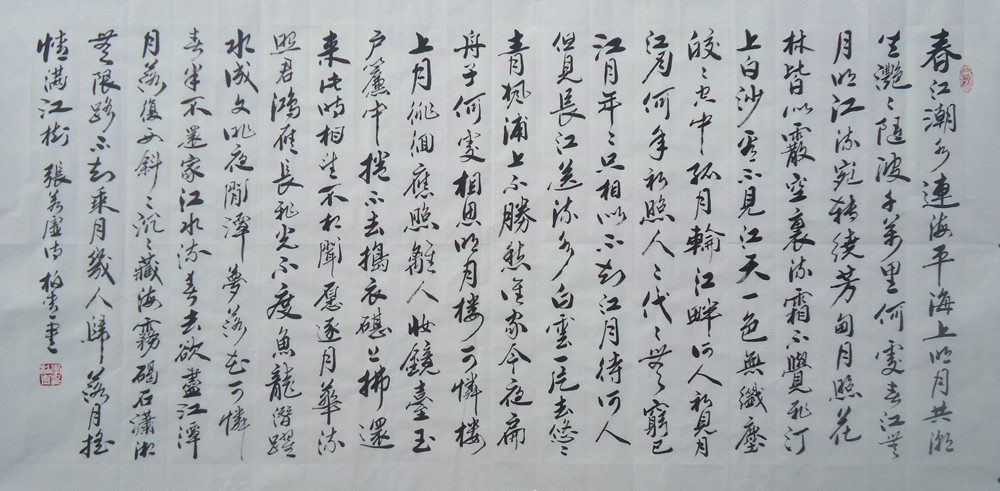 春江潮水連海平海上明月共潮
生灩〻隨波千萬里何處春江無
月明江流宛轉繞芳甸月照花
林皆似霰空裏流霜不覺飛汀
上白沙看不見江天一色無纖塵
皎〻空中孤月輪江畔何人初見月
江月何年初照人〻代〻無窮已
江月年〻只相似不知江月待何人
但見長江送流水白雲一片去悠〻
青楓浦上不勝愁誰家今夜扁
舟子何處相思明月楼可憐楼
上月徘徊應照離人妝鏡臺玉
戶簾中捲不去搗衣砧上拂還
来此時相望不相聞愿逐月華流
照君鴻雁長飛光不度魚龍潛躍
水成文昨夜閒潭夢落花可憐
春半不還家江水流春去欲盡江潭
月落復西斜〻沉〻藏海霧碣石瀟湘
無限路不知乘月幾人歸落月搖
情滿江樹 張若虛詩 書